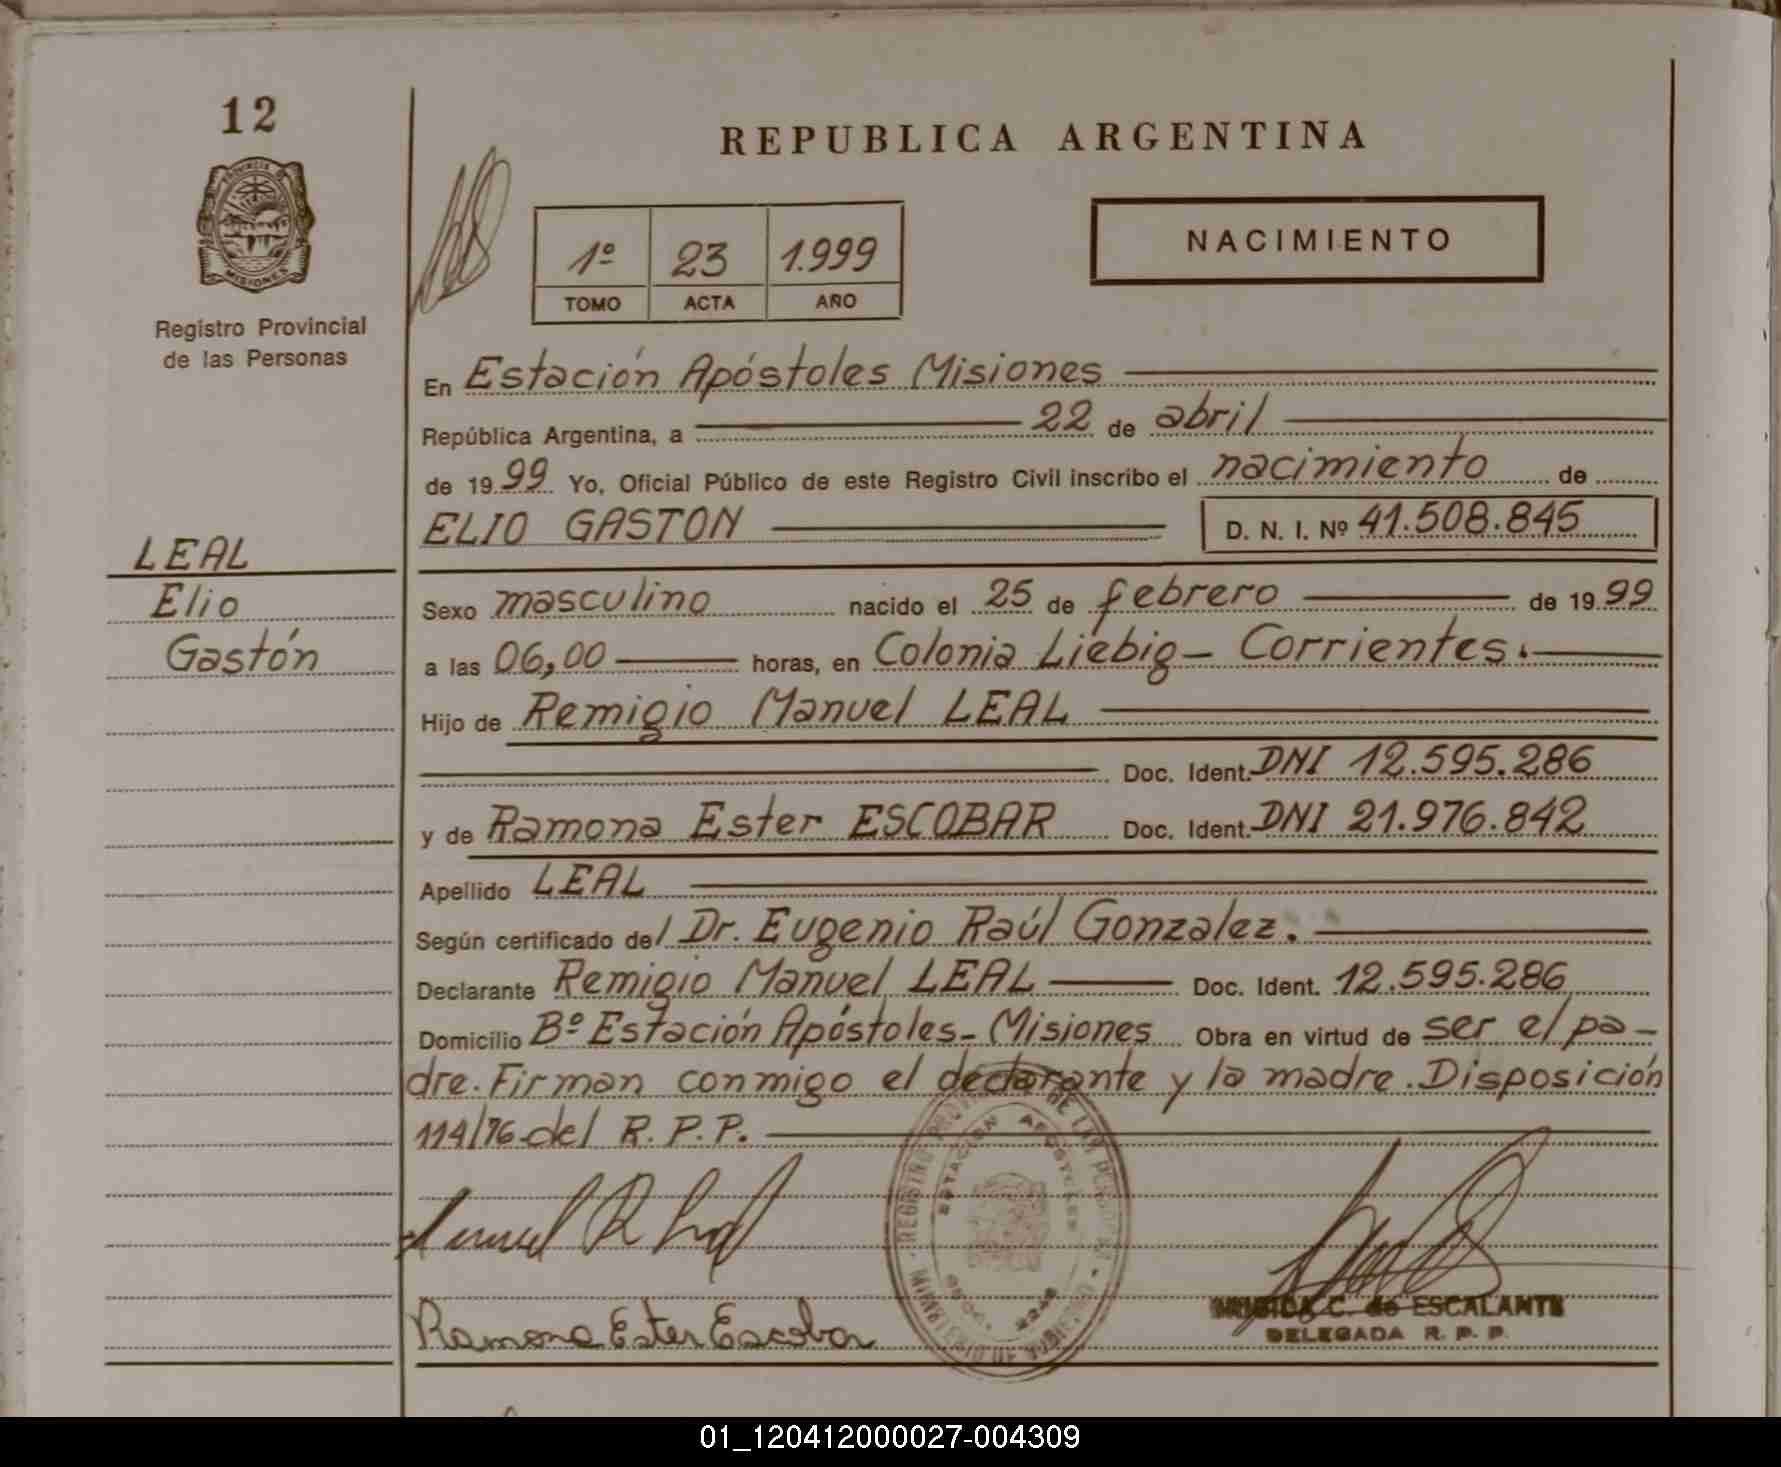 12
REPUBLICA ARGENTINA
PROVINCIA D
MISIONES
Registro Provincial
de las Personas
1º 23 1.999
TOMO ACTA AÑO
NACIMIENTO
En Estación Apóstoles Misiones
República Argentina, a 22 de abril
de 1999 Yo, Oficial Público de este Registro Civil inscribo el nacimiento de
ELIO GASTON D. N. I. Nº 41.508.845
LEAL
Elio
Gastón
Sexo masculino nacido el 25 de febrero de 1999
a las 06,00 horas, en Colonia Liebig - Corrientes.
Hijo de Remigio Manuel LEAL
Doc. Ident. DNI 12.595.286
y de Ramona Ester ESCOBAR Doc. Ident. DNI 21.976.842
Apellido LEAL
Según certificado del Dr. Eugenio Raúl Gonzalez.
Declarante Remigio Manuel LEAL Doc. Ident. 12.595.286
Domicilio Bº Estación Apóstoles - Misiones Obra en virtud de ser el pa-
dre. Firman conmigo el declarante y la madre. Disposición
114/76 del R. P. P.
REGISTRO PROVINCIAL DE LAS PERSONAS
ESTACION APOSTOLES
Ramona Ester Escobar
C. de ESCALANTE
DELEGADA R. P. P.
01_120412000027-004309